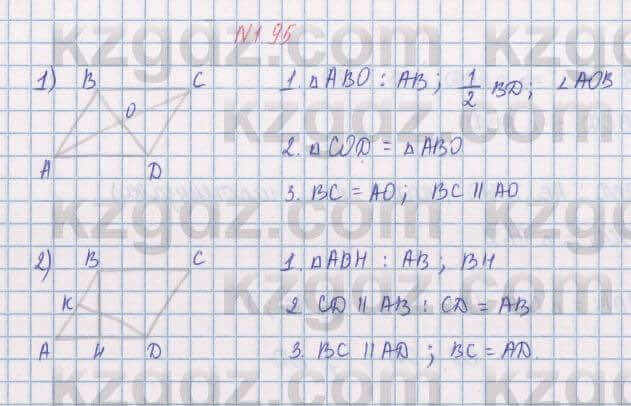 N195
1) B C 1. △ABO : AB; 1/2 BD; ∠AOB
O
A D 2. △COD = △ABO
3. BC = AO; BC || AO
2) B C 1. △ABH : AB; BH
K 2 CD || AB : CD = AB
A H D 3. BC || AD; BC = AD.
kzgdz.com kzgdz.com
kzgdz.com
kzgdz.com
kzgdz.com
kzgdz.com
kzgdz.com